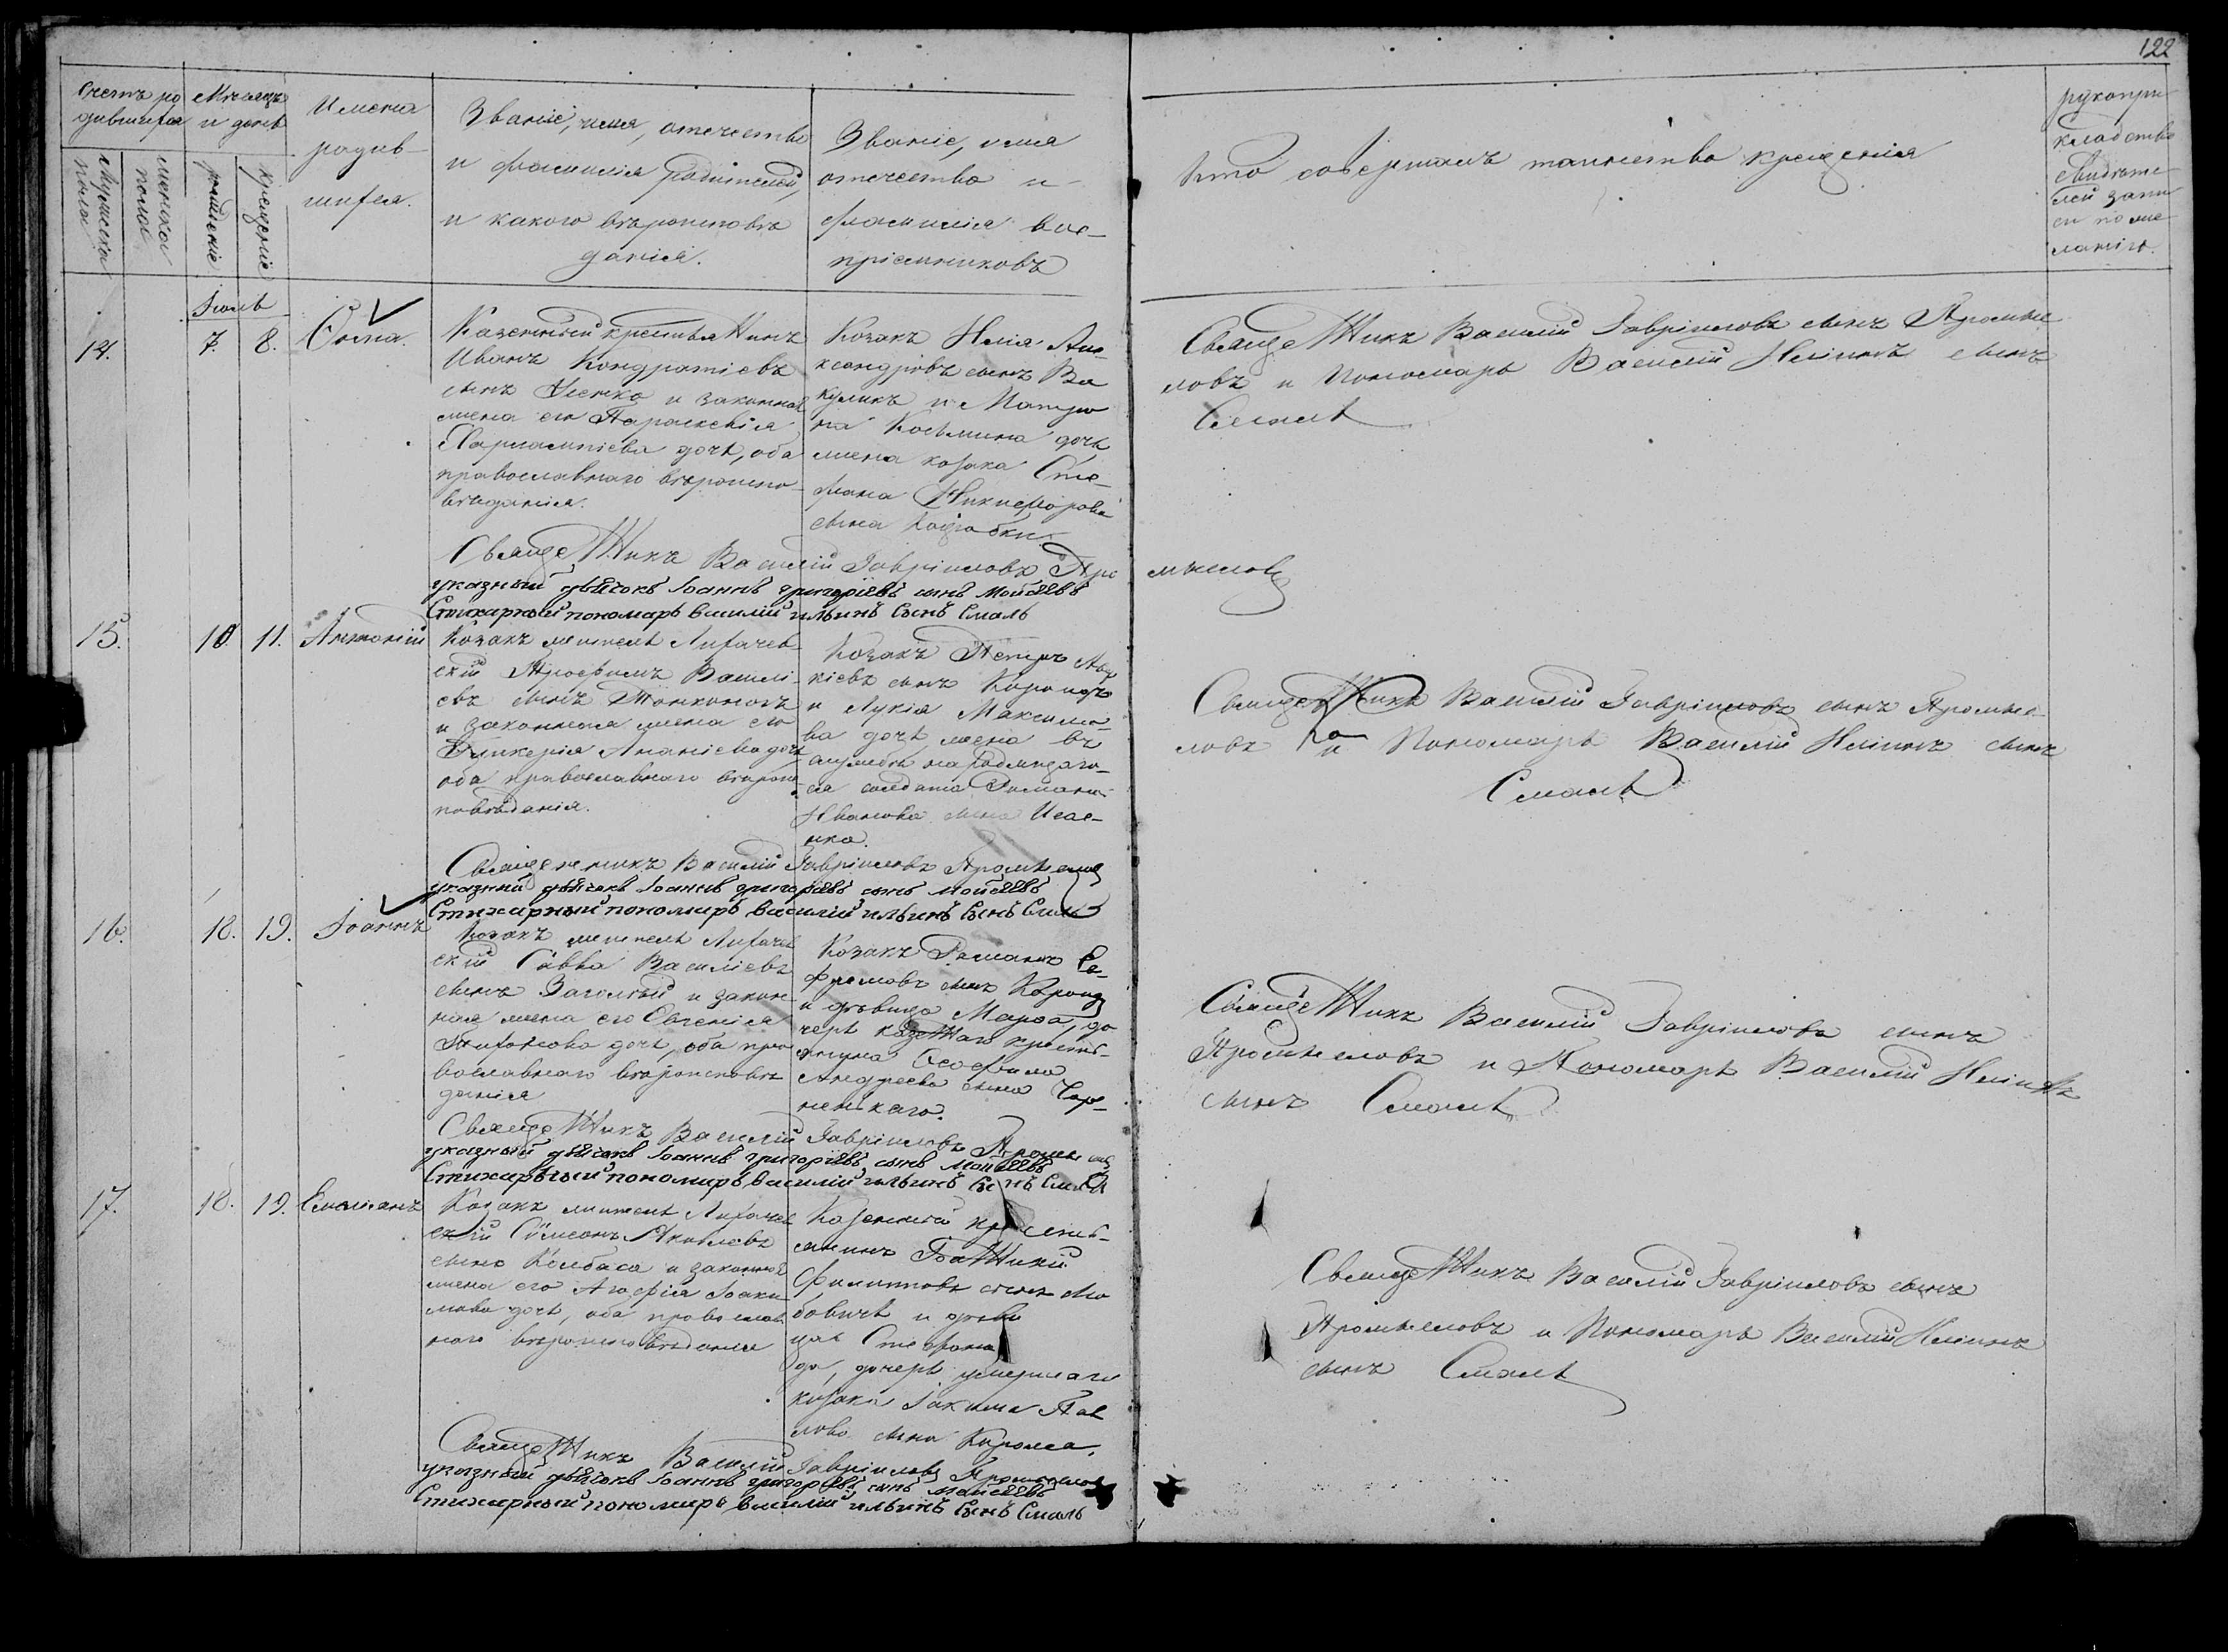 122
Счетъ ро
дившихся
Мѣсяцъ
и день
мужеска
пола
женска
пола
рожденіе
крещеніе
Имена
родив-
шихся.
Званіе, имя, отечество
и фамилія родителей,
и какого вѣроисповѣ
данія.
Званіе, имя
отечество и
фамилія вос-
пріемниковъ
Кто совершалъ таинство крещенія
рукопри-
кладство
свидѣте-
лей запи
си по же-
ланію.
Іюль
14.
7. 8.
Казенный крестьянинъ
Иванъ Кондратіевъ
сынъ и законная
жена его Параскевія
дочь, оба
православнаго вѣроиспо-
вѣданія.
Козакъ Илія Але-
ксандровъ сынъ Ва
кулинъ и Матро
на Косьмина дочь
жена козака Сте-
фана Никифорова
сына
Священникъ Василій Гавріиловъ сынъ Промыс
ловъ и Пономарь Василій Иліинъ сынъ
Смаль
Священникъ Василій Гавріиловъ Про
мысловъ
указный дьячокъ Іоаннъ григоріевъ сынъ Моисѣевъ
Стихарный пономарь василій ильинъ Сынъ Смаль
15. 10. 11. Антоній
Козакъ житель Лихачев
скій Трофимъ Василі-
евъ сынъ
и законная жена его
Гликерія Ананіева дочь
оба православнаго вѣроис-
повѣданія.
Козакъ Петръ
кіевъ сынъ
и Лукія Максимо
ва дочь жена въ
службѣ находящаго-
ся солдата Романа
Иванова сына Исае-
нка.
Священникъ Василій Гавріиловъ сынъ Промыс-
ловъ и Пономарь Василій Иліинъ сынъ
Смаль
Священникъ Василій Гавріиловъ Промысловъ
указный дьячокъ Іоаннъ григоріевъ сынъ Моисѣевъ
Стихарный пономарь василій ильинъ Сынъ Смаль
16. 18. 19. Іоаннъ
Козакъ житель Лихачев
скій Савва Василіевъ
сынъ и закон-
ная жена его Евгенія
Трифонова дочь, оба пра
вославнаго вѣроисповѣ
данія
Козакъ Романъ Ее-
фремовъ сынъ
и дѣвица Марѳа, до
черь казеннаго кресть-
янина Ѳеофила
Андреева сына Чор-
ненькаго.
Священникъ Василій Гавріиловъ сынъ
Промысловъ и Пономарь Василій Иліинъ
сынъ Смаль
Священникъ Василій Гавріиловъ Промысловъ
указный дьячокъ Іоаннъ григоріевъ сынъ Моисѣевъ
Стихарный пономарь василій ильинъ Сынъ Смаль
17. 18. 19. Емиліанъ
Козакъ житель Лихачев
скій Сѵмеонъ Яковлевъ
сынъ Колбаса и законная
жена его Агафія Іоаки
мова дочь, оба православ
наго вѣроисповѣданія
Казенный кресть-
янинъ
Филипповъ сынъ
и дѣви
ца
дочерь умершаго
козака Іакима Пав
лова сына
Священникъ Василій Гавріиловъ сынъ
Промысловъ и Пономарь Василій Иліинъ
сынъ Смаль
Священникъ Василій Гавріиловъ Промысловъ
указный дьячокъ Іоаннъ григоріевъ сынъ Моисѣевъ
Стихарный пономарь василій ильинъ Сынъ Смаль